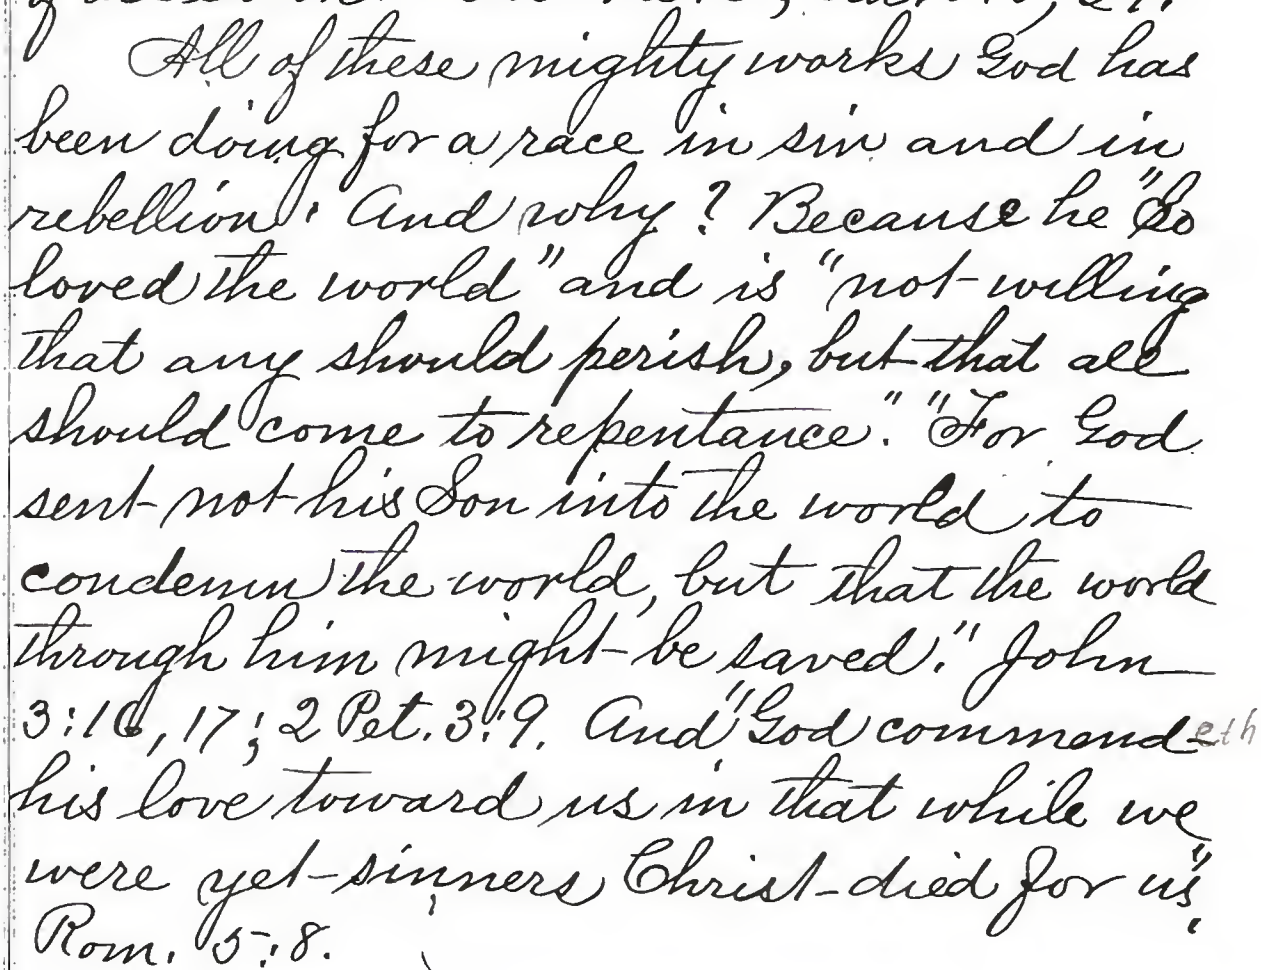 All of these mighty works God has
been doing for a race in sin and in
rebellion. And why? Because he "So
loved the world" and is "not willing
that any should perish, but that all
should come to repentance." "For God
sent not his Son into the world to
condemn the world, but that the world
through him might be saved." John
3:16, 17; 2 Pet. 3:9. And "God commendeth
his love toward us in that while we
were yet sinners Christ died for us".
Rom. 5:8.